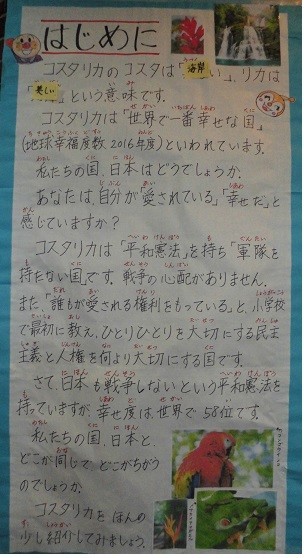 はじめに
コスタリカのコスタは「海岸い」、リカは
「美しい」という意味です。
コスタリカは「世界で一番幸せな国」
(地球幸福度数2016年度)といわれています。
私たちの国、日本はどうでしょうか。
あなたは、自分が「愛されている」「幸せだ」と
感じていますか?
コスタリカは「平和憲法」を持ち「軍隊を
持たない国」です。戦争の心配がありません。
また、「誰もが愛される権利をもっている」と、小学校
で最初に教え、ひとりひとりを大切にする民主
主義と人権を何より大切にする国です。
さて、日本も戦争しないという平和憲法を
持っていますが、幸せ度は世界で58位です。
私たちの国、日本と、
どこが同じで、どこがちがう
のでしょうか。
コスタリカをほんの
少し紹介してみましょう。